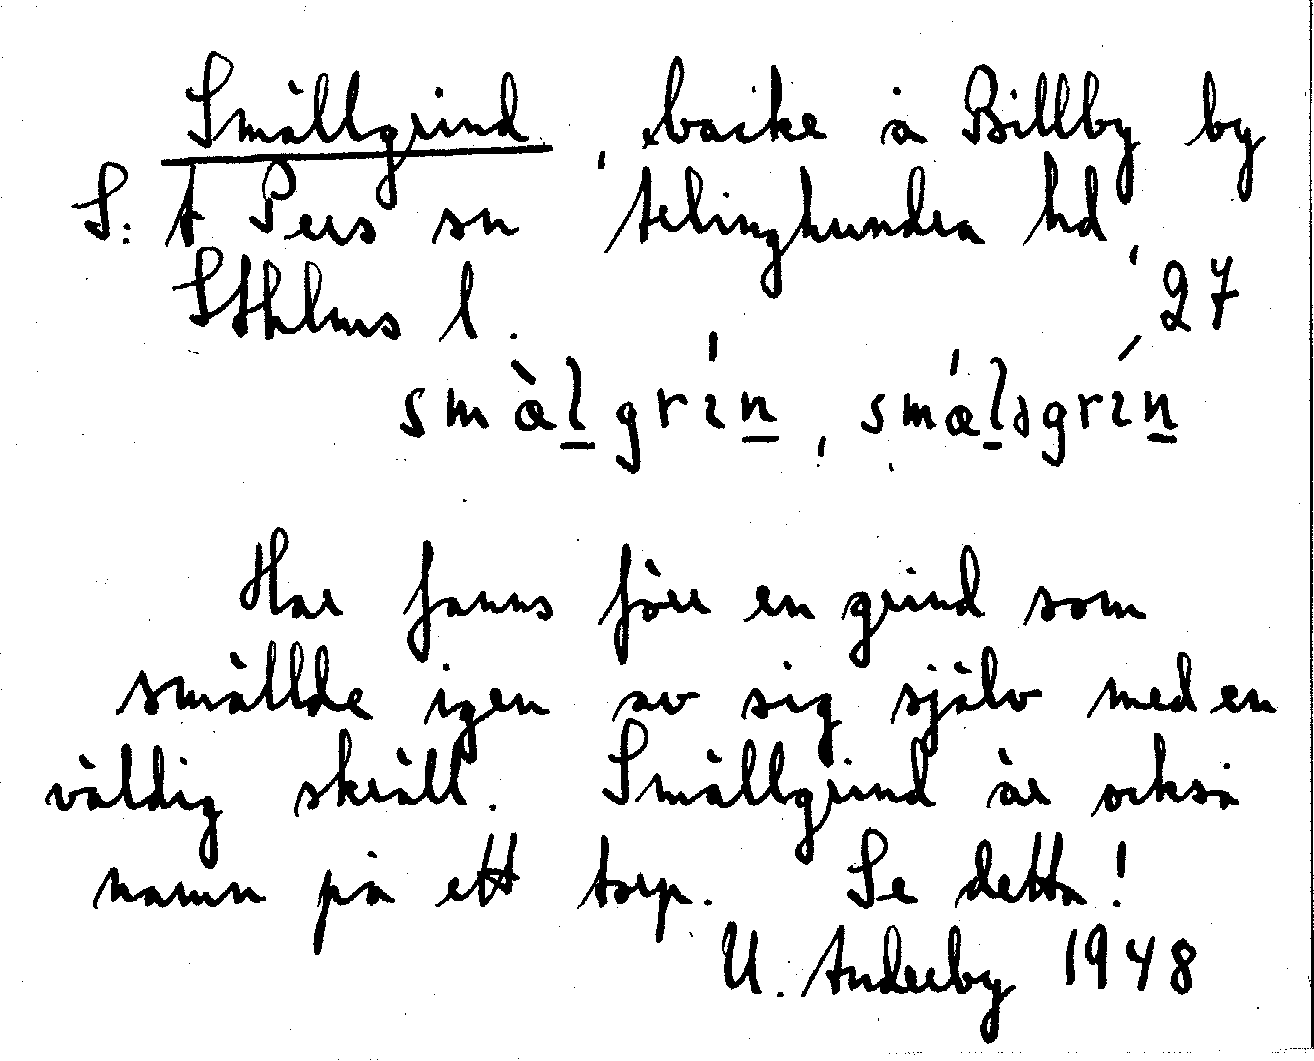 Smällgrind, backe å Billby by
S:t Pers sn Seminghundra hd,
Sthlms l. 27
smæ̀l̲grɩ́n̲, smǽl̲dgrɩ́n̲
Här fanns förr en grind som
smällde igen av sig själv med en
väldig skräll. Smällgrind är också
namn på ett torp. Se detta!
U. Anderby 1948